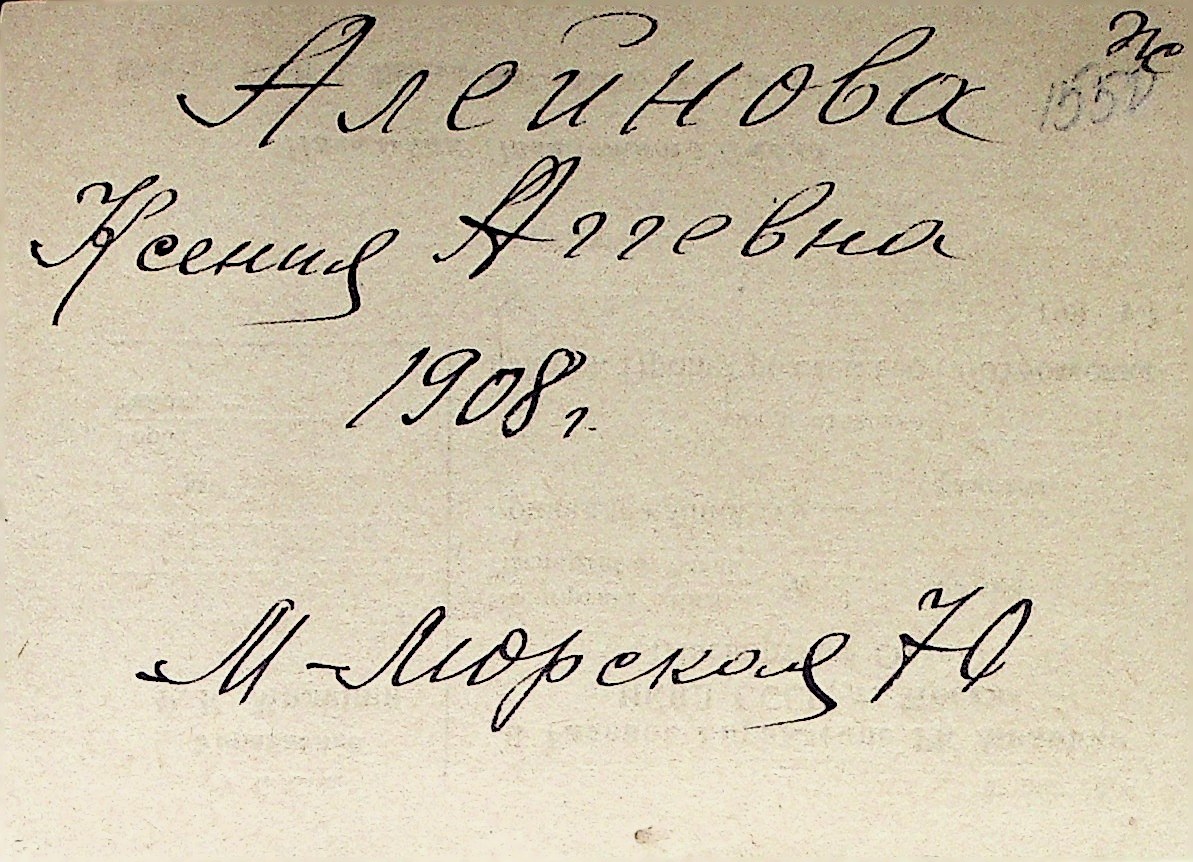 Алейнова
1550
Ксения Аггевна
1908г.
М-Морская 70